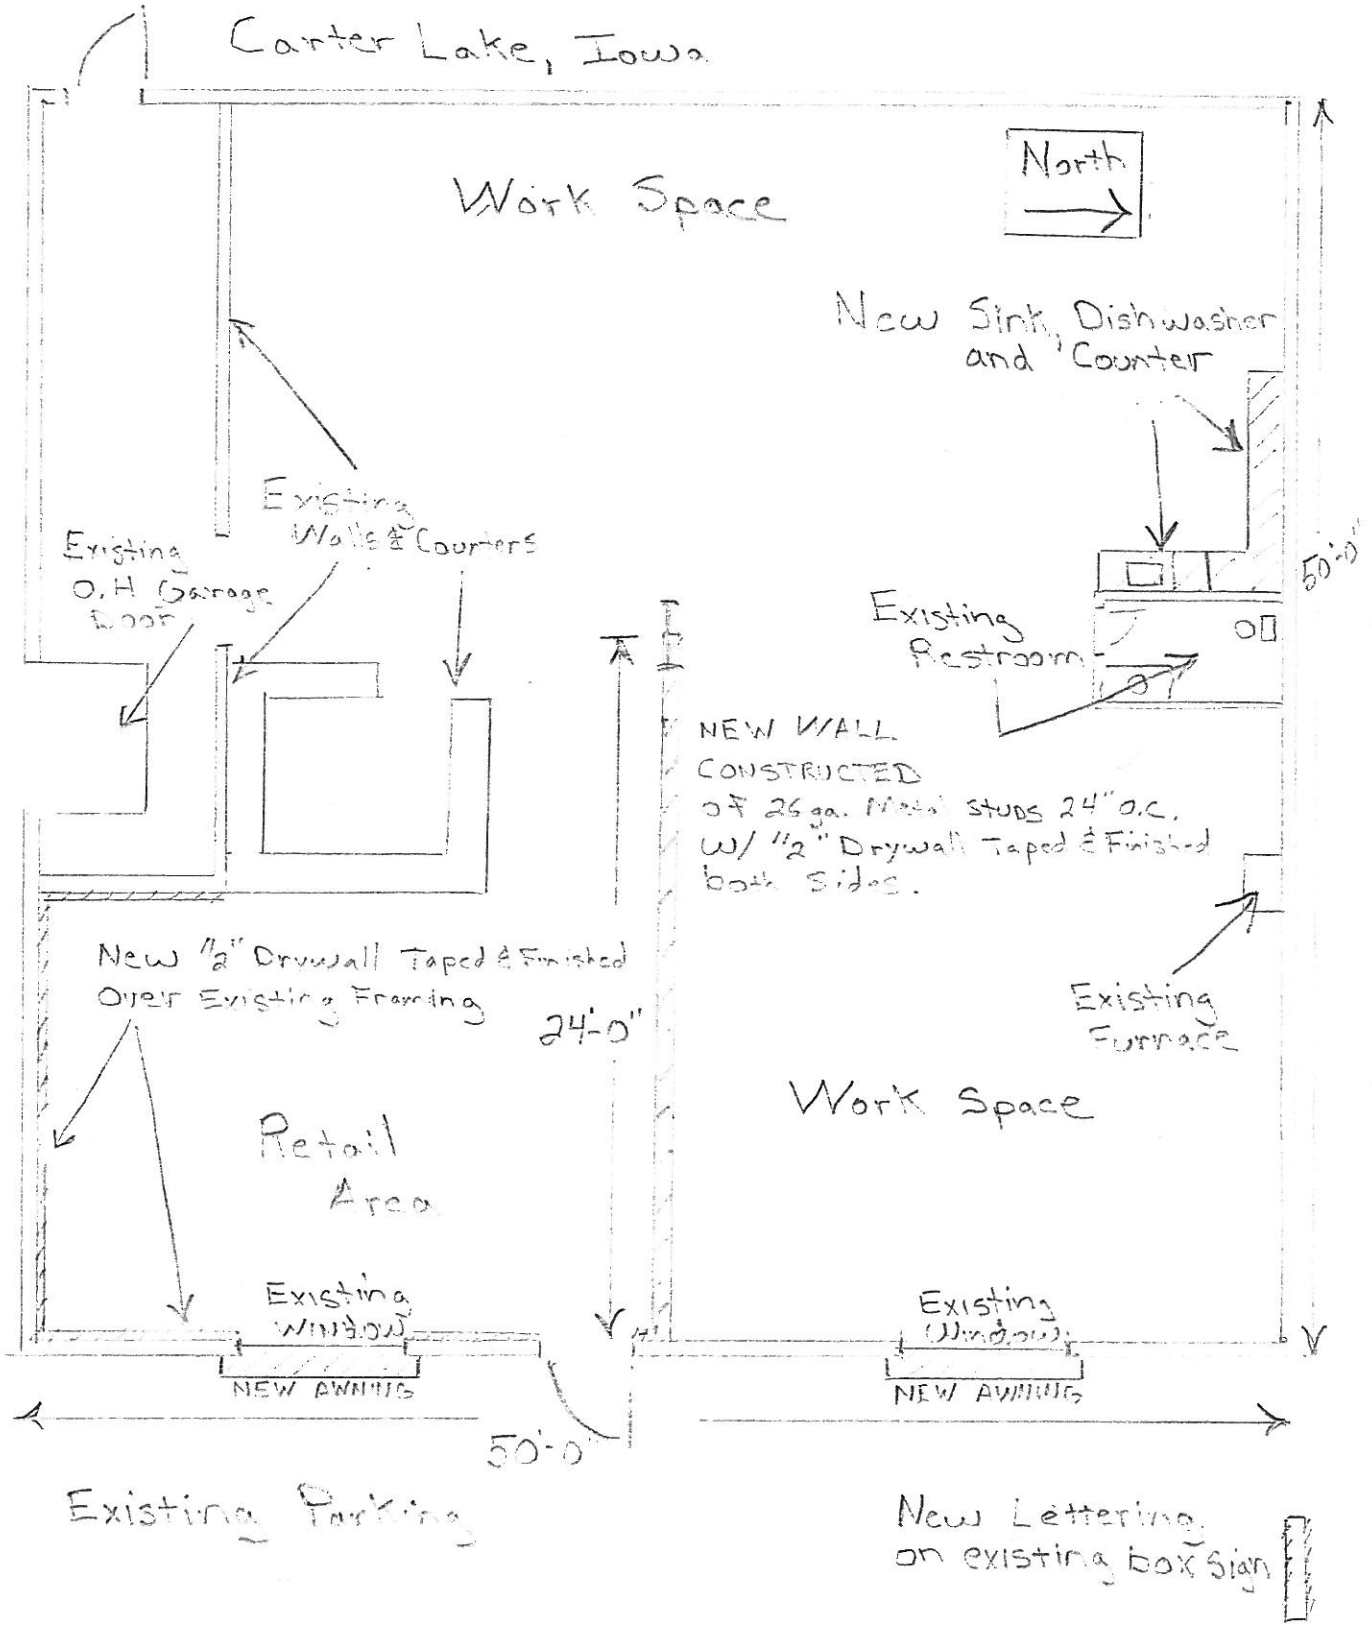 Carter Lake, Iowa
Work Space
North
New Sink, Dishwasher
and Counter
Existing
Walls & Counters
Existing
O.H Garage
Door
50'-0"
Existing
Restroom
NEW WALL
CONSTRUCTED
of 26 ga. Metal STUDS 24" O.C.
W/ 1/2" Drywall Taped & Finished
both Sides.
New 1/2" Drywall Taped & Finished
Over Existing Framing
24'-0"
Existing
Furnace
Work Space
Retail
Area
Existing
WINDOW
Existing
Window
NEW AWNING
NEW AWNING
50'-0"
Existing Parking
New Lettering
on existing box sign